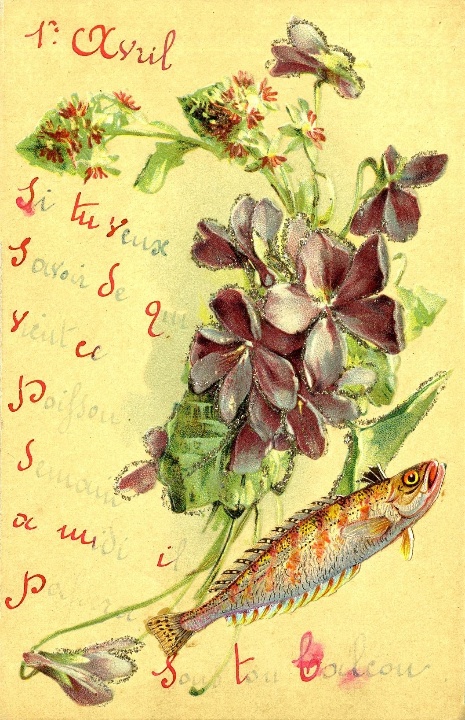 1er Avril
Si tu veux
Savoir De Qui
vient ce
Poisson
Demain
a midi il
Passera
Sous ton Balcon